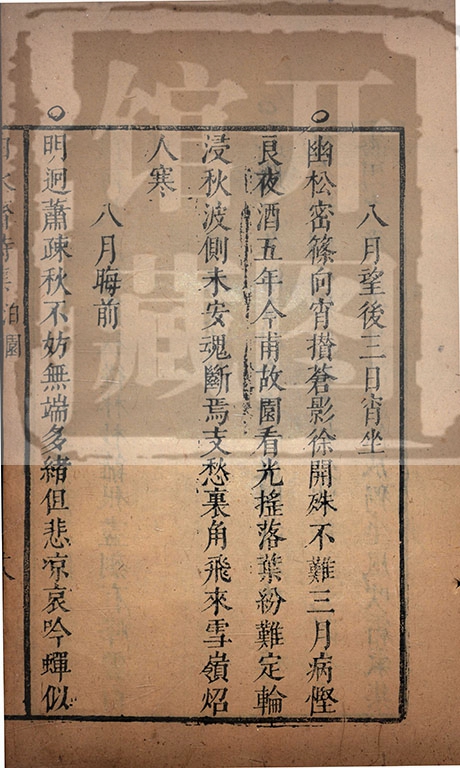 八月望後三日宵坐
幽松密篠向宵攢蒼影徐開殊不難三月病慳
良夜酒五年今甫故園看光搖落葉紛難定輪
浸秋波側未安魂斷焉支愁裏角飛來雪嶺炤
人寒
八月晦前
明迥蕭疎秋不妨無端多緒但悲凉哀吟蟬似
園